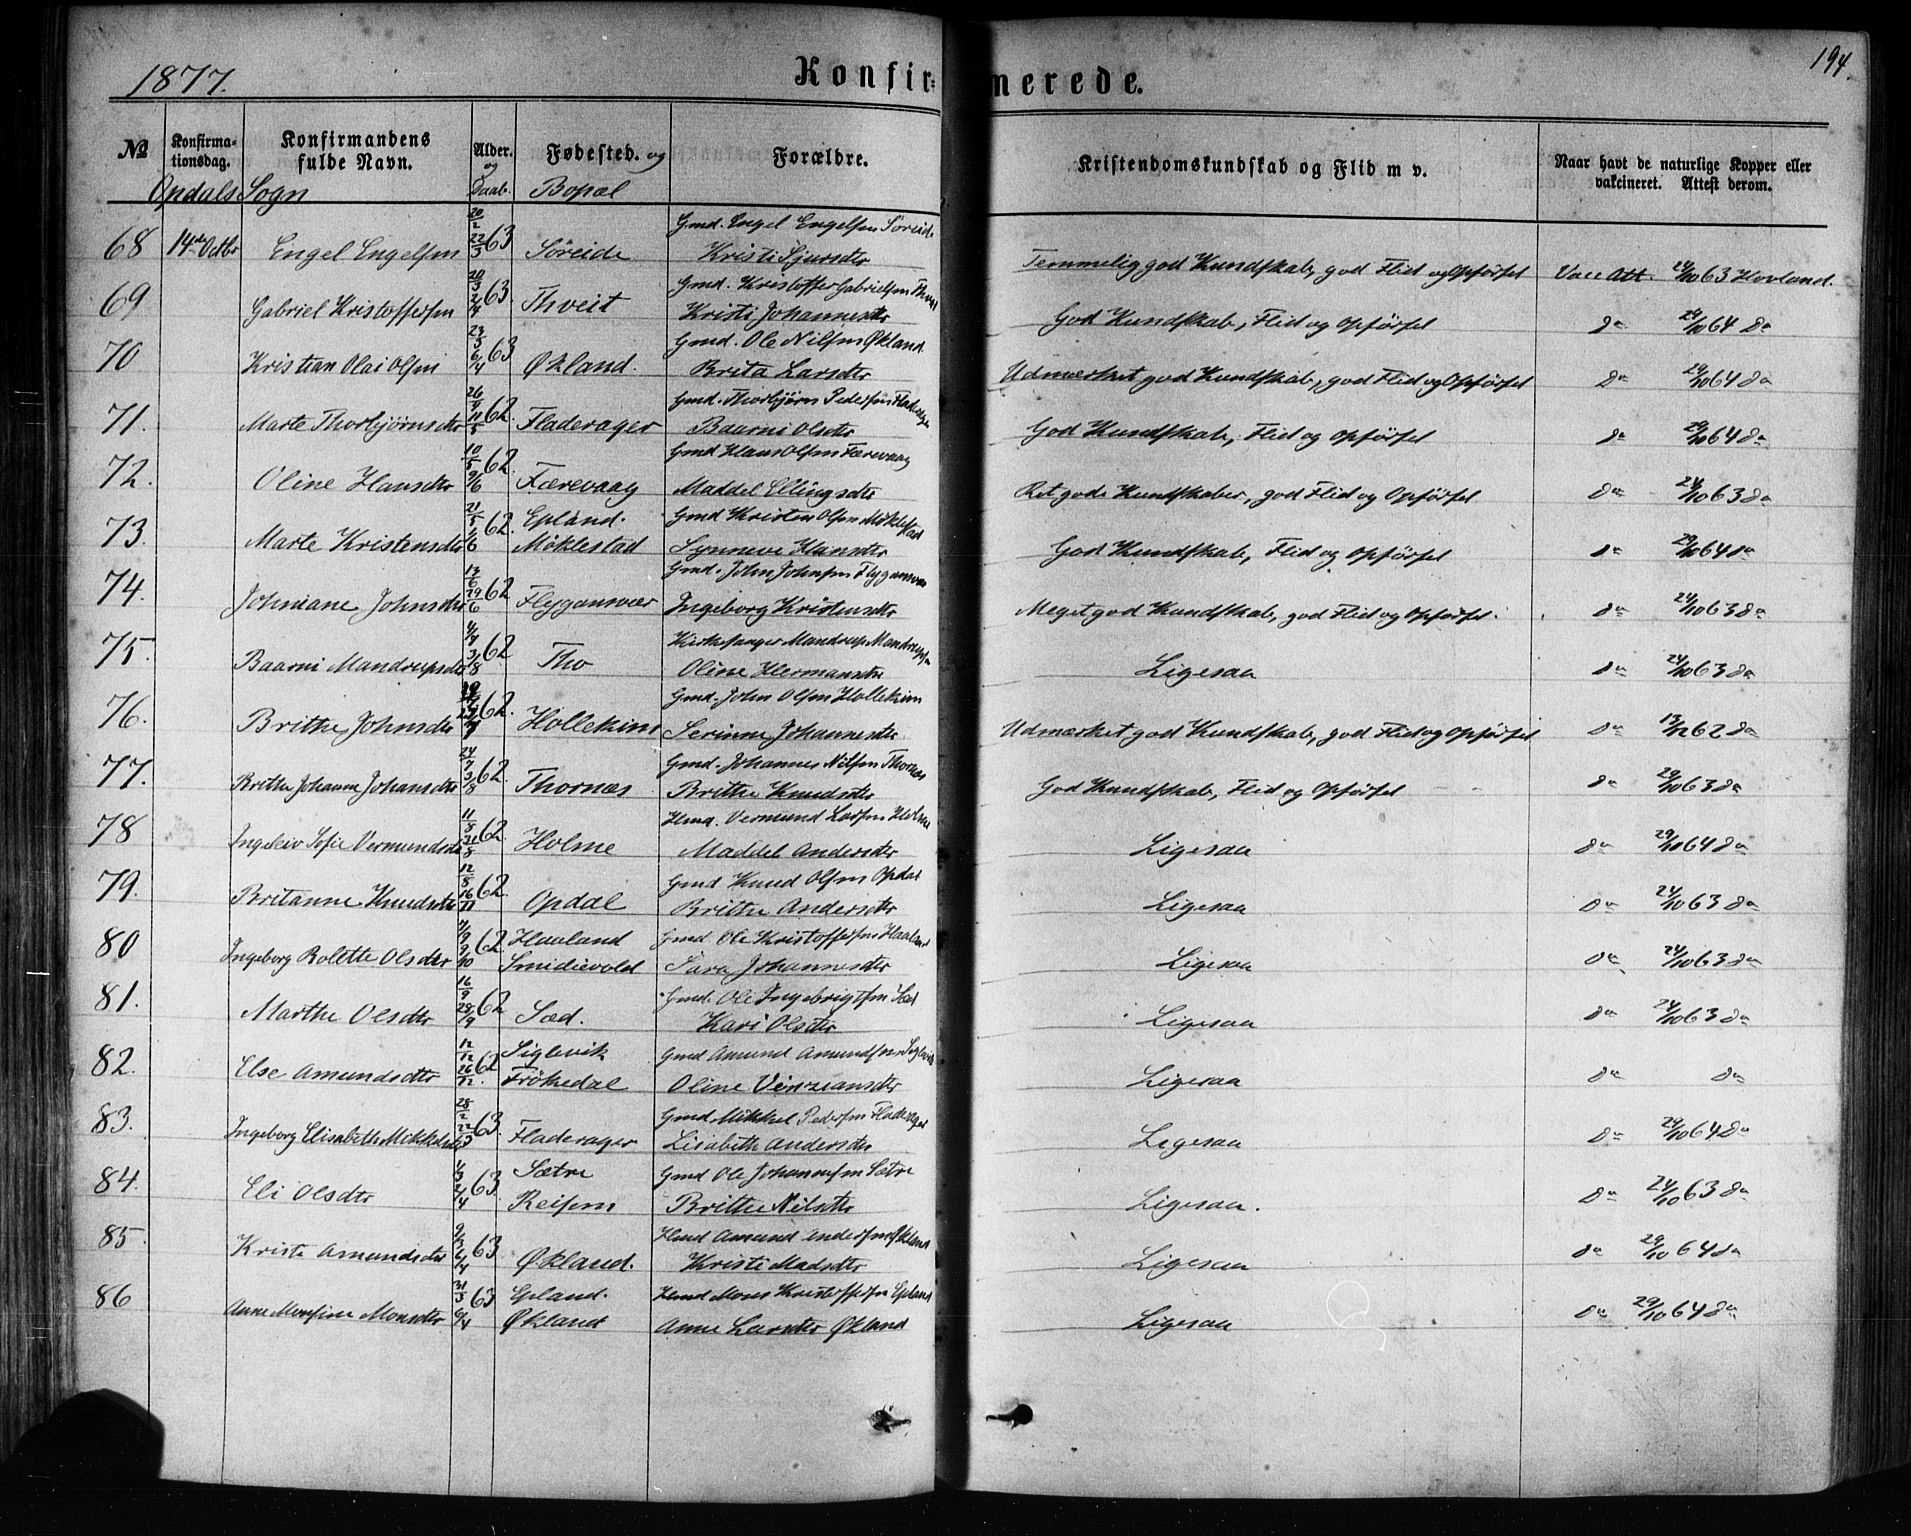 1877. Konfirmerede. 194.
No Konfirmationsdag. Konfirmandens fulde Navn. Alder. og Daab. Fødested. og Bopæl Forældre. Kristendomskundskab og Flid m v. Naar havt de naturlige Kopper eller vakcineret. Attest derom.
Opdals Sogn
68 14de Octbr Engel Engelsen 20/2 22/3 63 Søreide Gmd. Engel Engelsen Søreid. Kristi Sjursdtr Temmelig god Kundskab, god Flid og Opførsel Vacc Att. 24/10 63 Hovland.
69 Gabriel Kristoffersen 63 Thveit Gmd. Kristoffer Gabrielsen Thveit Kristi Johannesdtr God Kundskab, Flid og Opførsel do 29/10 64 do
70 Kristian Olai Olsen 23/3 6/4 63 Økland. Gmd. Ole Nilsen Økland. Brita Larsdtr Udmærket god Kundskab, god Flid og Opførsel do 29/10 64 do
71. Marte Thorbjørnsdtr 26/4 11/5 62. Fladerager Gmd. Thorbjørn Pedersen Fladerager Baarni Olsdtr God Kundskab, Flid og Opførsel do 29/10 64 do
72. Oline Hansdtr 10/5 9/6 62. Færevaag Gmd Hans Olsen Færevaag Maddel Ellingsdtr Ret gode Kundskaber, god Flid og Opførsel do 24/10 63 do
73. Marte Kristensdtr 21/5 1/6 62. Epland. Møklestad Gmd Kristen Olsen Møklestad Synneve Hansdtr God Kundskab, Flid og Opførsel do 29/10 64 do
74. Johniane Johnsdtr 13/6 29/6 62 Flygansvær Gmd. John Johnsen Flygansvær Ingeborg Kristensdtr Meget god Kundskab, god Flid og Opførsel. do 24/10 63 do
75. Baarni Mandrupsdtr 4/7 3/8 62 Tho Kirkesanger Mandrup Mandrupsen Oline Hermansdtr Ligesaa do 24/10 63 do
76. Brithe Johnsdtr 62. Hollekim Gmd. John Olsen Hollekim Serinne Johannesdtr Udmærket god Kundskab, god Flid og Opførsel do 13/12 62 do
77. Brithe Johanne Johansdtr 24/7 3/8 62. Thornæs Gmd. Johannes Nilsen Thornæs Brithe Knudsdtr God Kundskab, Flid og Opførsel do 29/10 63 do
78 Ingeleiv Sofie Vermundsdtr 11/8 31/8 62. Holme Hmd. Vermund Larsen Holme Maddel Andersdtr Ligesaa do 29/10 64 do
79. Britanne Knudsdtr 12/8 16/11 62. Opdal Gmd Knud Olsen Opdal Brithe Andersdtr Ligesaa do 24/10 63 do
80 Ingeborg Bolette Olsdtr 9/10 62 Haaland Smidievold Gmd Ole Kristoffersen Haaland Sara Johannesdtr Ligesaa do 24/10 63 do
81. Marthe Olsdtr 16/9 28/9 62 Sæd. Gmd. Ole Ingebrigtsen Sæd Kari Olsdtr Ligesaa do 24/10 63 do
82. Else Amundsdtr 12/12 26/12. 62 Siglevik Frøkedal Gmd Amund Amundsen Siglevik Oline Vinziansdtr Ligesaa do do
83. Ingeborg Elisabeth Mikkelsdtr 28/2 22/3 63. Fladerager Gmd Mikkel Pedersen Fladerager Lisabeth Andersdtr Ligesaa do 29/10 64 do
84. Eli Olsdtr 1/3 2/4 63. Sætre Reisen Gmd Ole Johannesen Sætre Brithe Nilsdtr Ligesaa. do 24/10 63 do
85. Kristi Amundsdtr 9/3 6/4 63 Økland. Hmd Amund Andersen Økland Kristi Madsdtr Ligesaa do 29/10 64 do
86 Anne Monsine Monsdtr 31/3 6/4 63 Epland. Økland Hmd Mons Kristoffersen Epland Anne Larsdtr Økland Ligesaa do 29/10 64 do